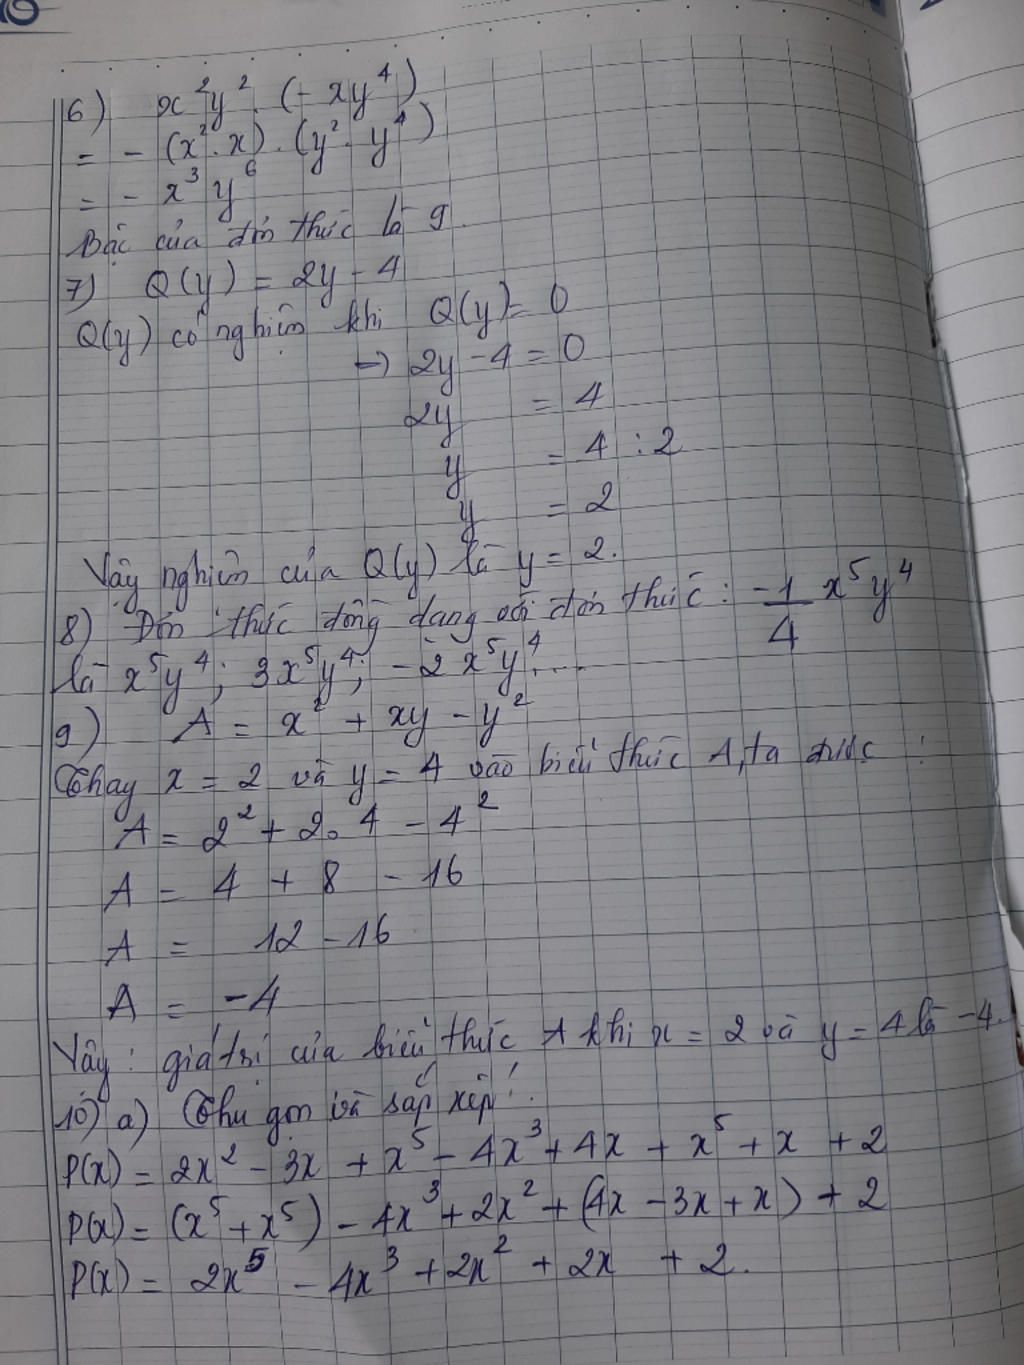 6) x²y² . (- xy⁴)
= - (x² . x) . (y² . y⁴)
= - x³ y⁶
Bậc của đơn thức là 9.
7) Q(y) = 2y - 4
Q(y) có nghiệm khi Q(y) = 0
→ 2y - 4 = 0
2y = 4
y = 4 : 2
y = 2
Vậy nghiệm của Q(y) là y = 2.
8) Đơn thức đồng dạng với đơn thức : -1/4 x⁵y⁴
là x⁵y⁴; 3x⁵y⁴; -2x⁵y⁴...
9) A = x² + xy - y²
Thay x = 2 và y = 4 vào biểu thức A, ta được :
A = 2² + 2. 4 - 4²
A = 4 + 8 - 16
A = 12 - 16
A = -4
Vậy : giá trị của biểu thức A khi x = 2 và y = 4 là -4.
10) a) Thu gọn và sắp xếp :
P(x) = 2x² - 3x + x⁵ - 4x³ + 4x + x⁵ + x + 2
P(x) = (x⁵ + x⁵) - 4x³ + 2x² + (4x - 3x + x) + 2
P(x) = 2x⁵ - 4x³ + 2x² + 2x + 2.